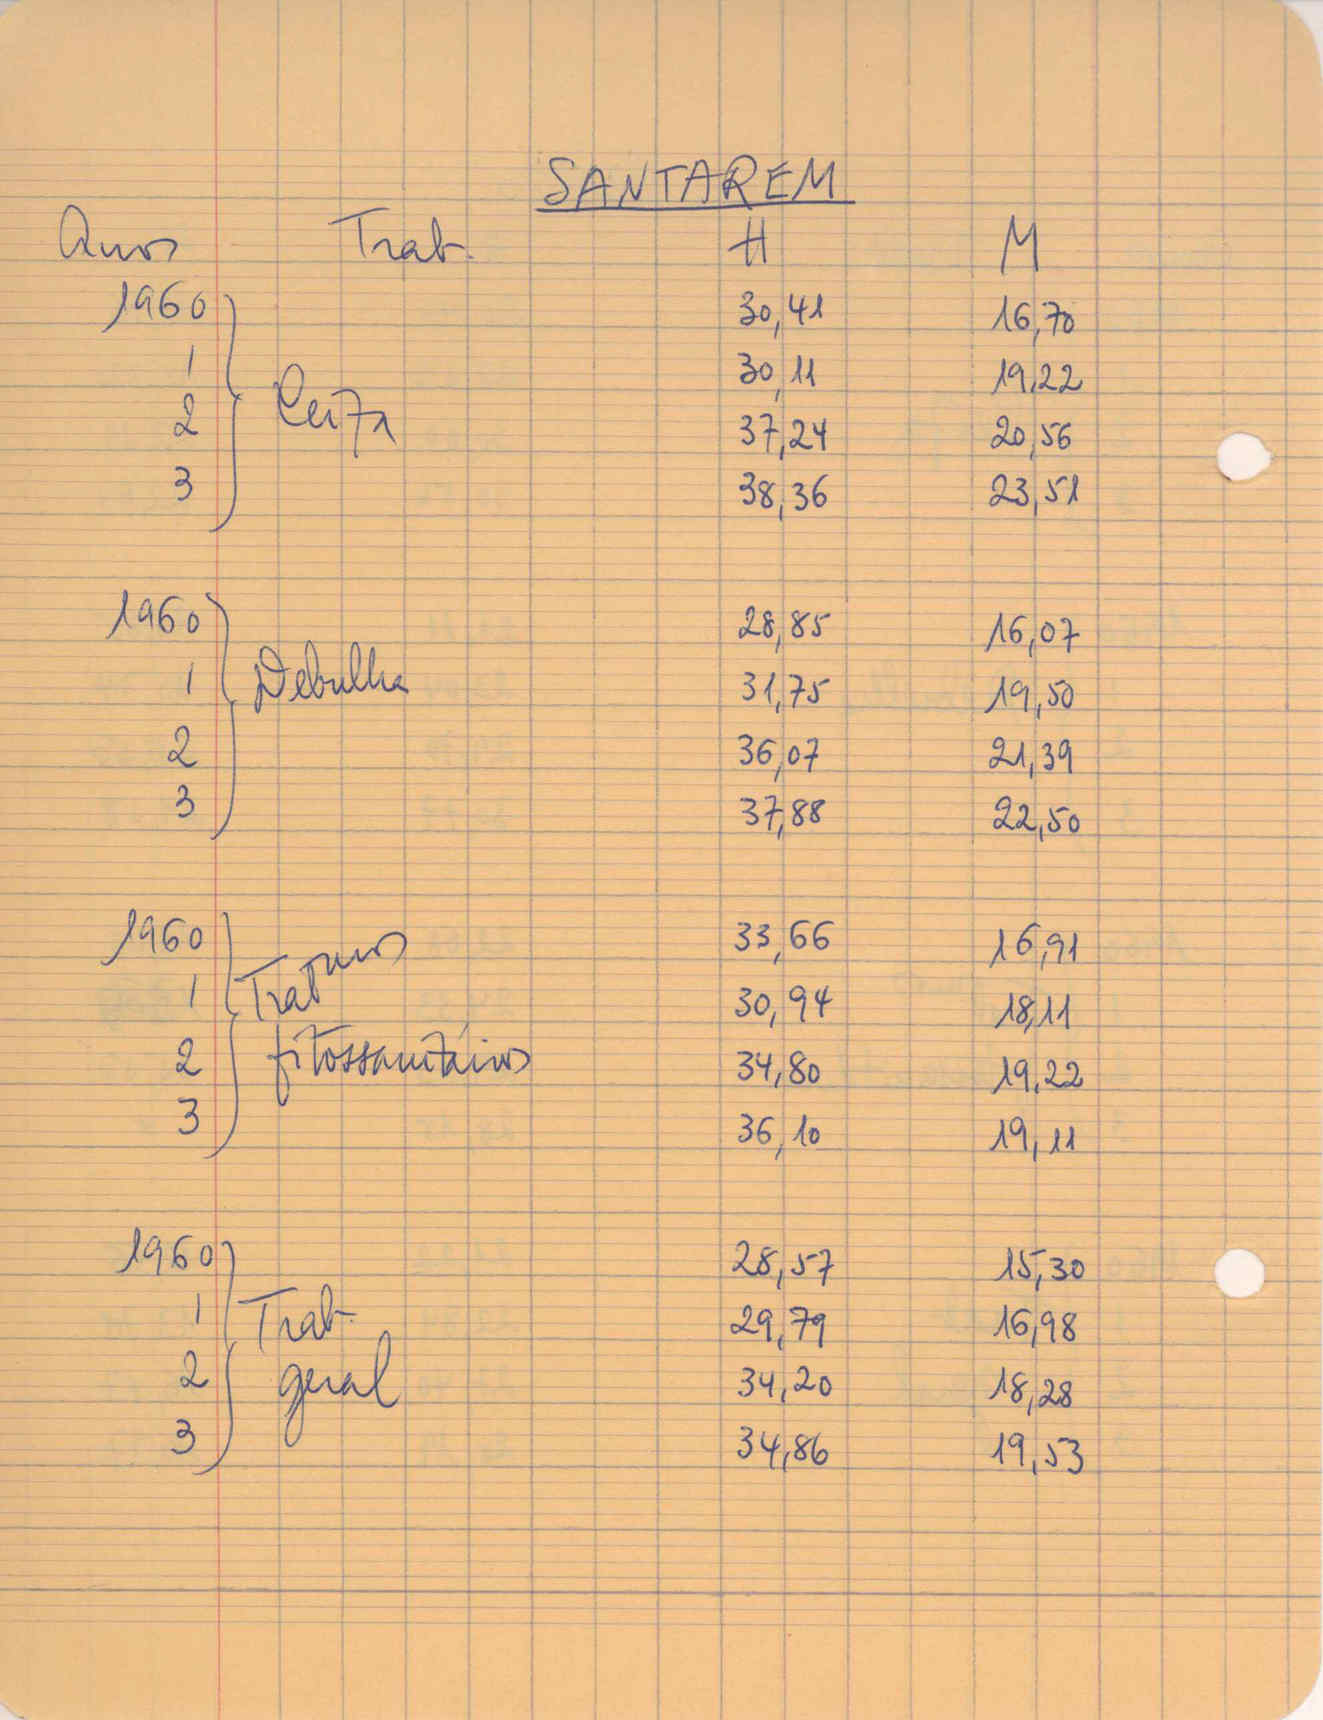 SANTAREM
Anos Trab. H M
1960 30,41 16,70
1 30,11 19,22
2 Ceifa 37,24 20,56
3 38,36 23,51
1960 28,85 16,07
1 Debulha 31,75 19,50
2 36,07 21,39
3 37,88 22,50
1960 33,66 16,91
1 Tratmos 30,94 18,11
2 fitossanitários 34,80 19,22
3 36,10 19,11
1960 28,57 15,30
1 Trab. 29,79 16,98
2 geral 34,20 18,28
3 34,86 19,53